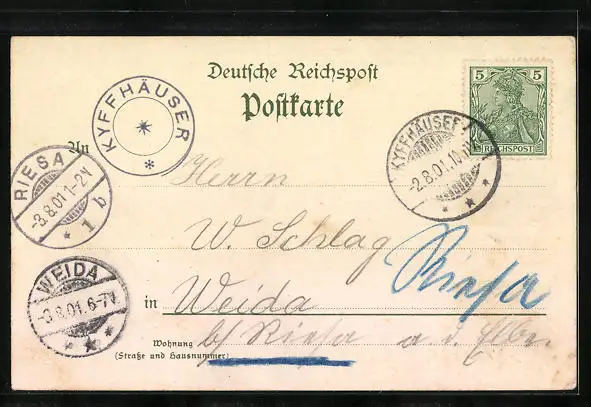 Deutsche Reichspost
Postkarte
5 5
REICHSPOST
KYFFHÄUSER
KYFFHÄUSER
-2.8.01.10
An
RIESA
-3.8.01.1-2N
1 b
Herrn
W. Schlag
Riesa
WEIDA
-3.8.01.6-7N
in Weida
Wohnung
(Straße und Hausnummer)
b/ Riesa a. d. Elbe.